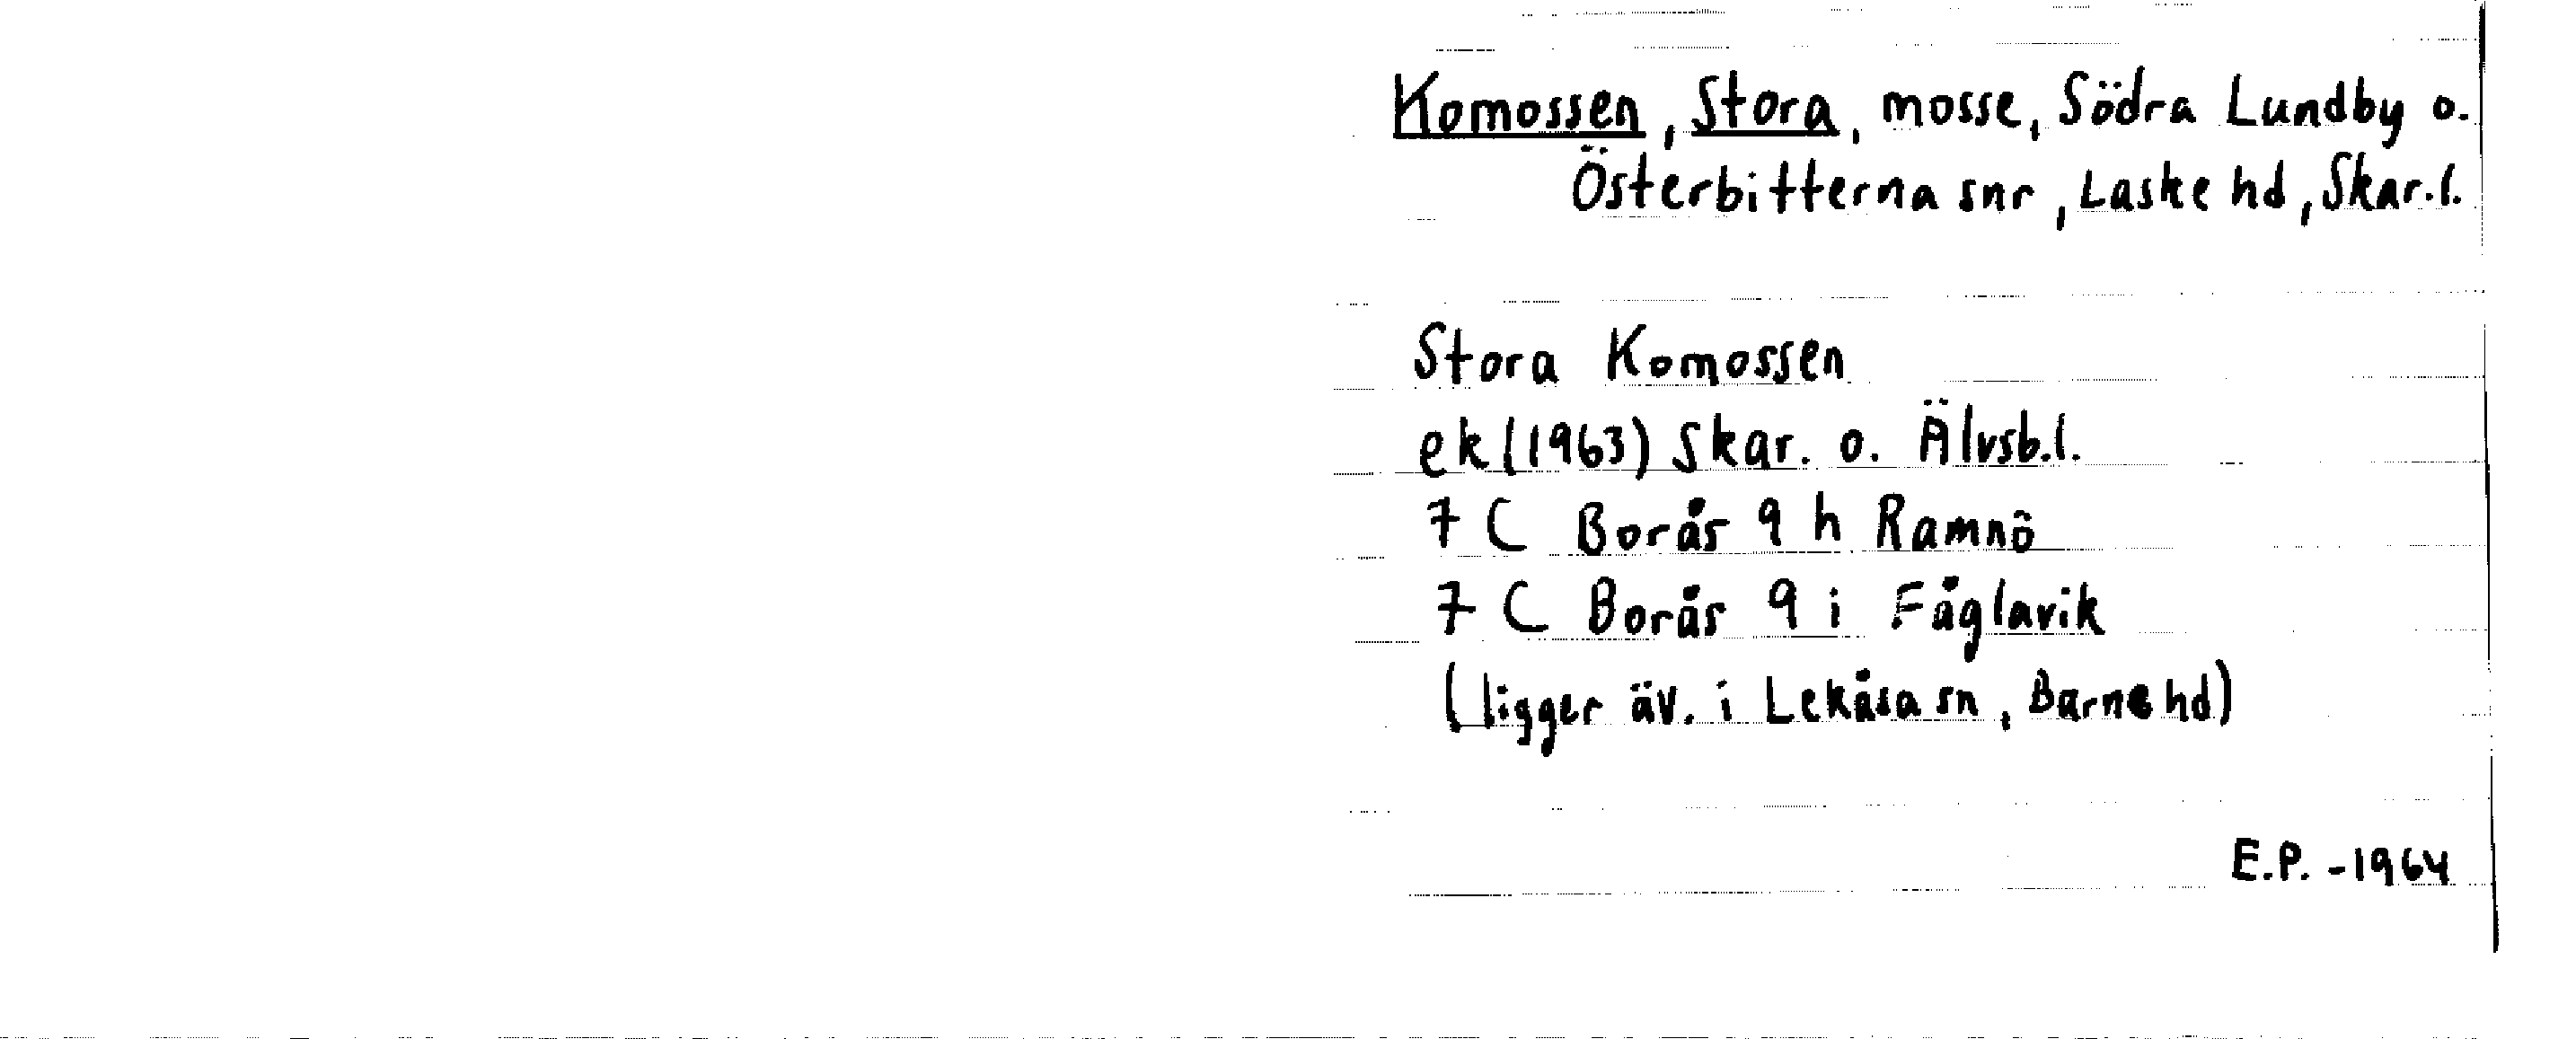 Komossen, Stora, mosse, Södra Lundby o.
Österbitterna snr, Laske hd, Skar.l.
Stora Komossen
ek (1963) Skar. o. Älvsb.l.
7 C Borås 9 h Ramnö
7 C Borås 9 i Fåglavik
(ligger äv. i Lekåsa sn, Barne hd)
E.P. - 1964